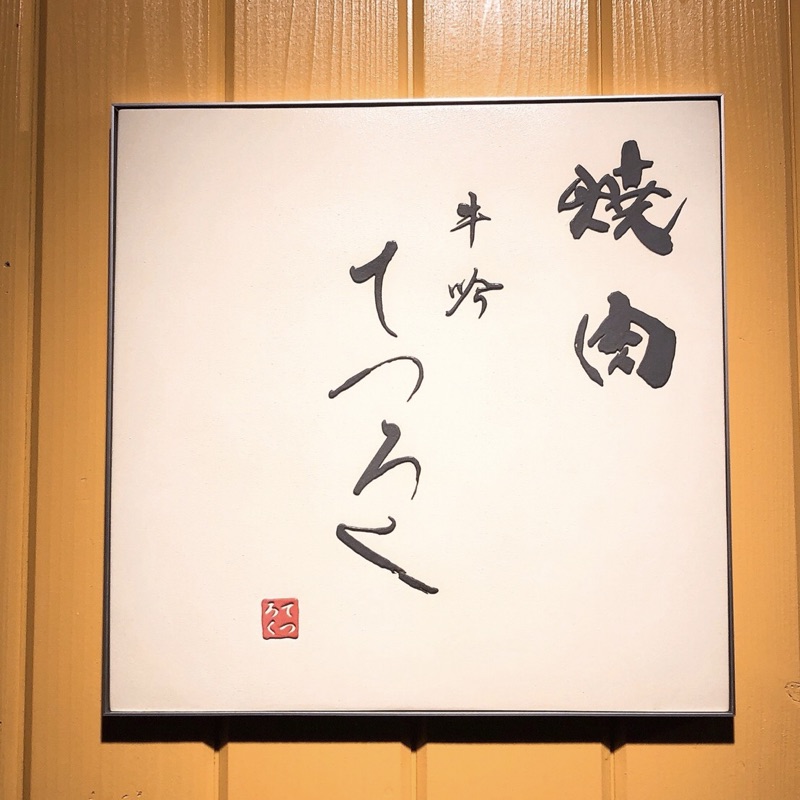 焼肉
牛吟
てつろく
てつ
ろく